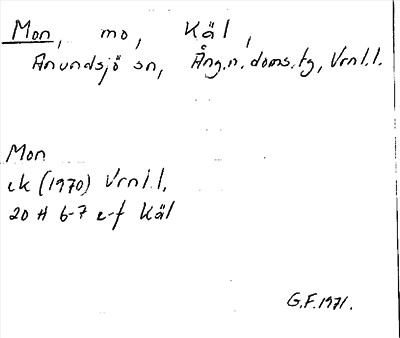 Mon, mo, Käl,
Anundsjö sn, Ång.n. doms.tg, Vrnl.l.
Mon
ek (1970) Vrnl.l.
20 H 6-7 e-f Käl
G.F. 1971.